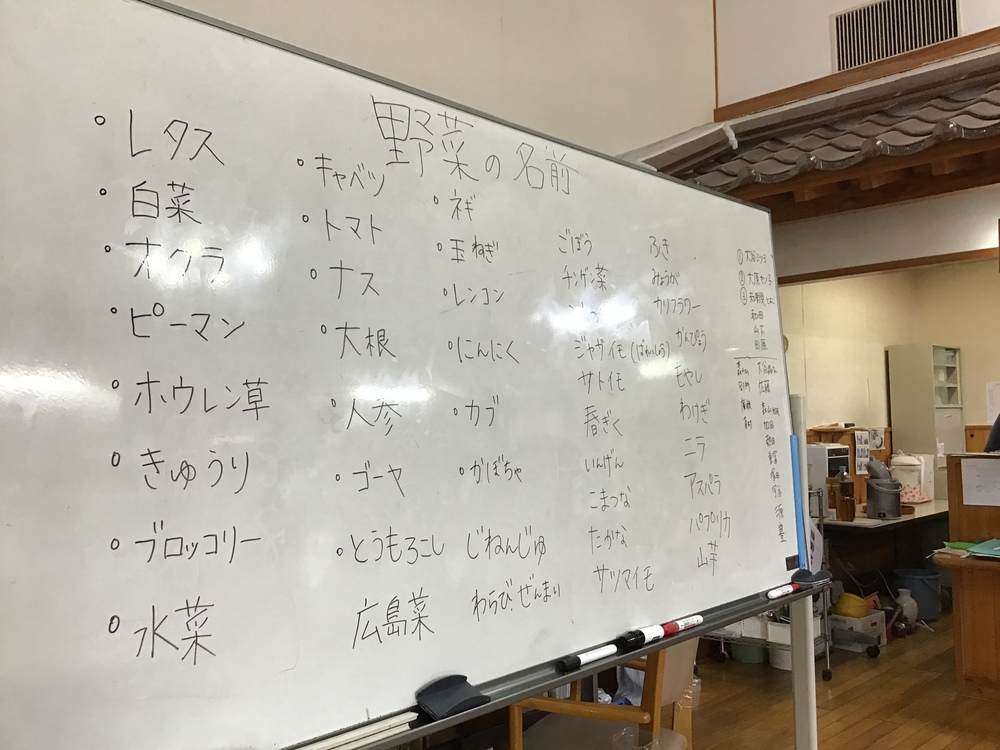 野菜の名前
・レタス
・白菜
・オクラ
・ピーマン
・ホウレン草
・きゅうり
・ブロッコリー
・水菜
・キャベツ
・トマト
・ナス
・大根
・人参
・ゴーヤ
・とうもろこし
広島菜
・ネギ
・玉ねぎ
・レンコン
・にんにく
・カブ
・かぼちゃ
じねんじゅ
わらび、ぜんまい
ごぼう
チンゲン菜
ジャガイモ(ばれいしょう)
サトイモ
春ぎく
いんげん
こまつな
たかな
サツマイモ
ふき
みょうが
カリフラワー
かんぴょう
もやし
わけぎ
ニラ
アスパラ
パプリカ
山芋
和田
山下
田原
佐藤